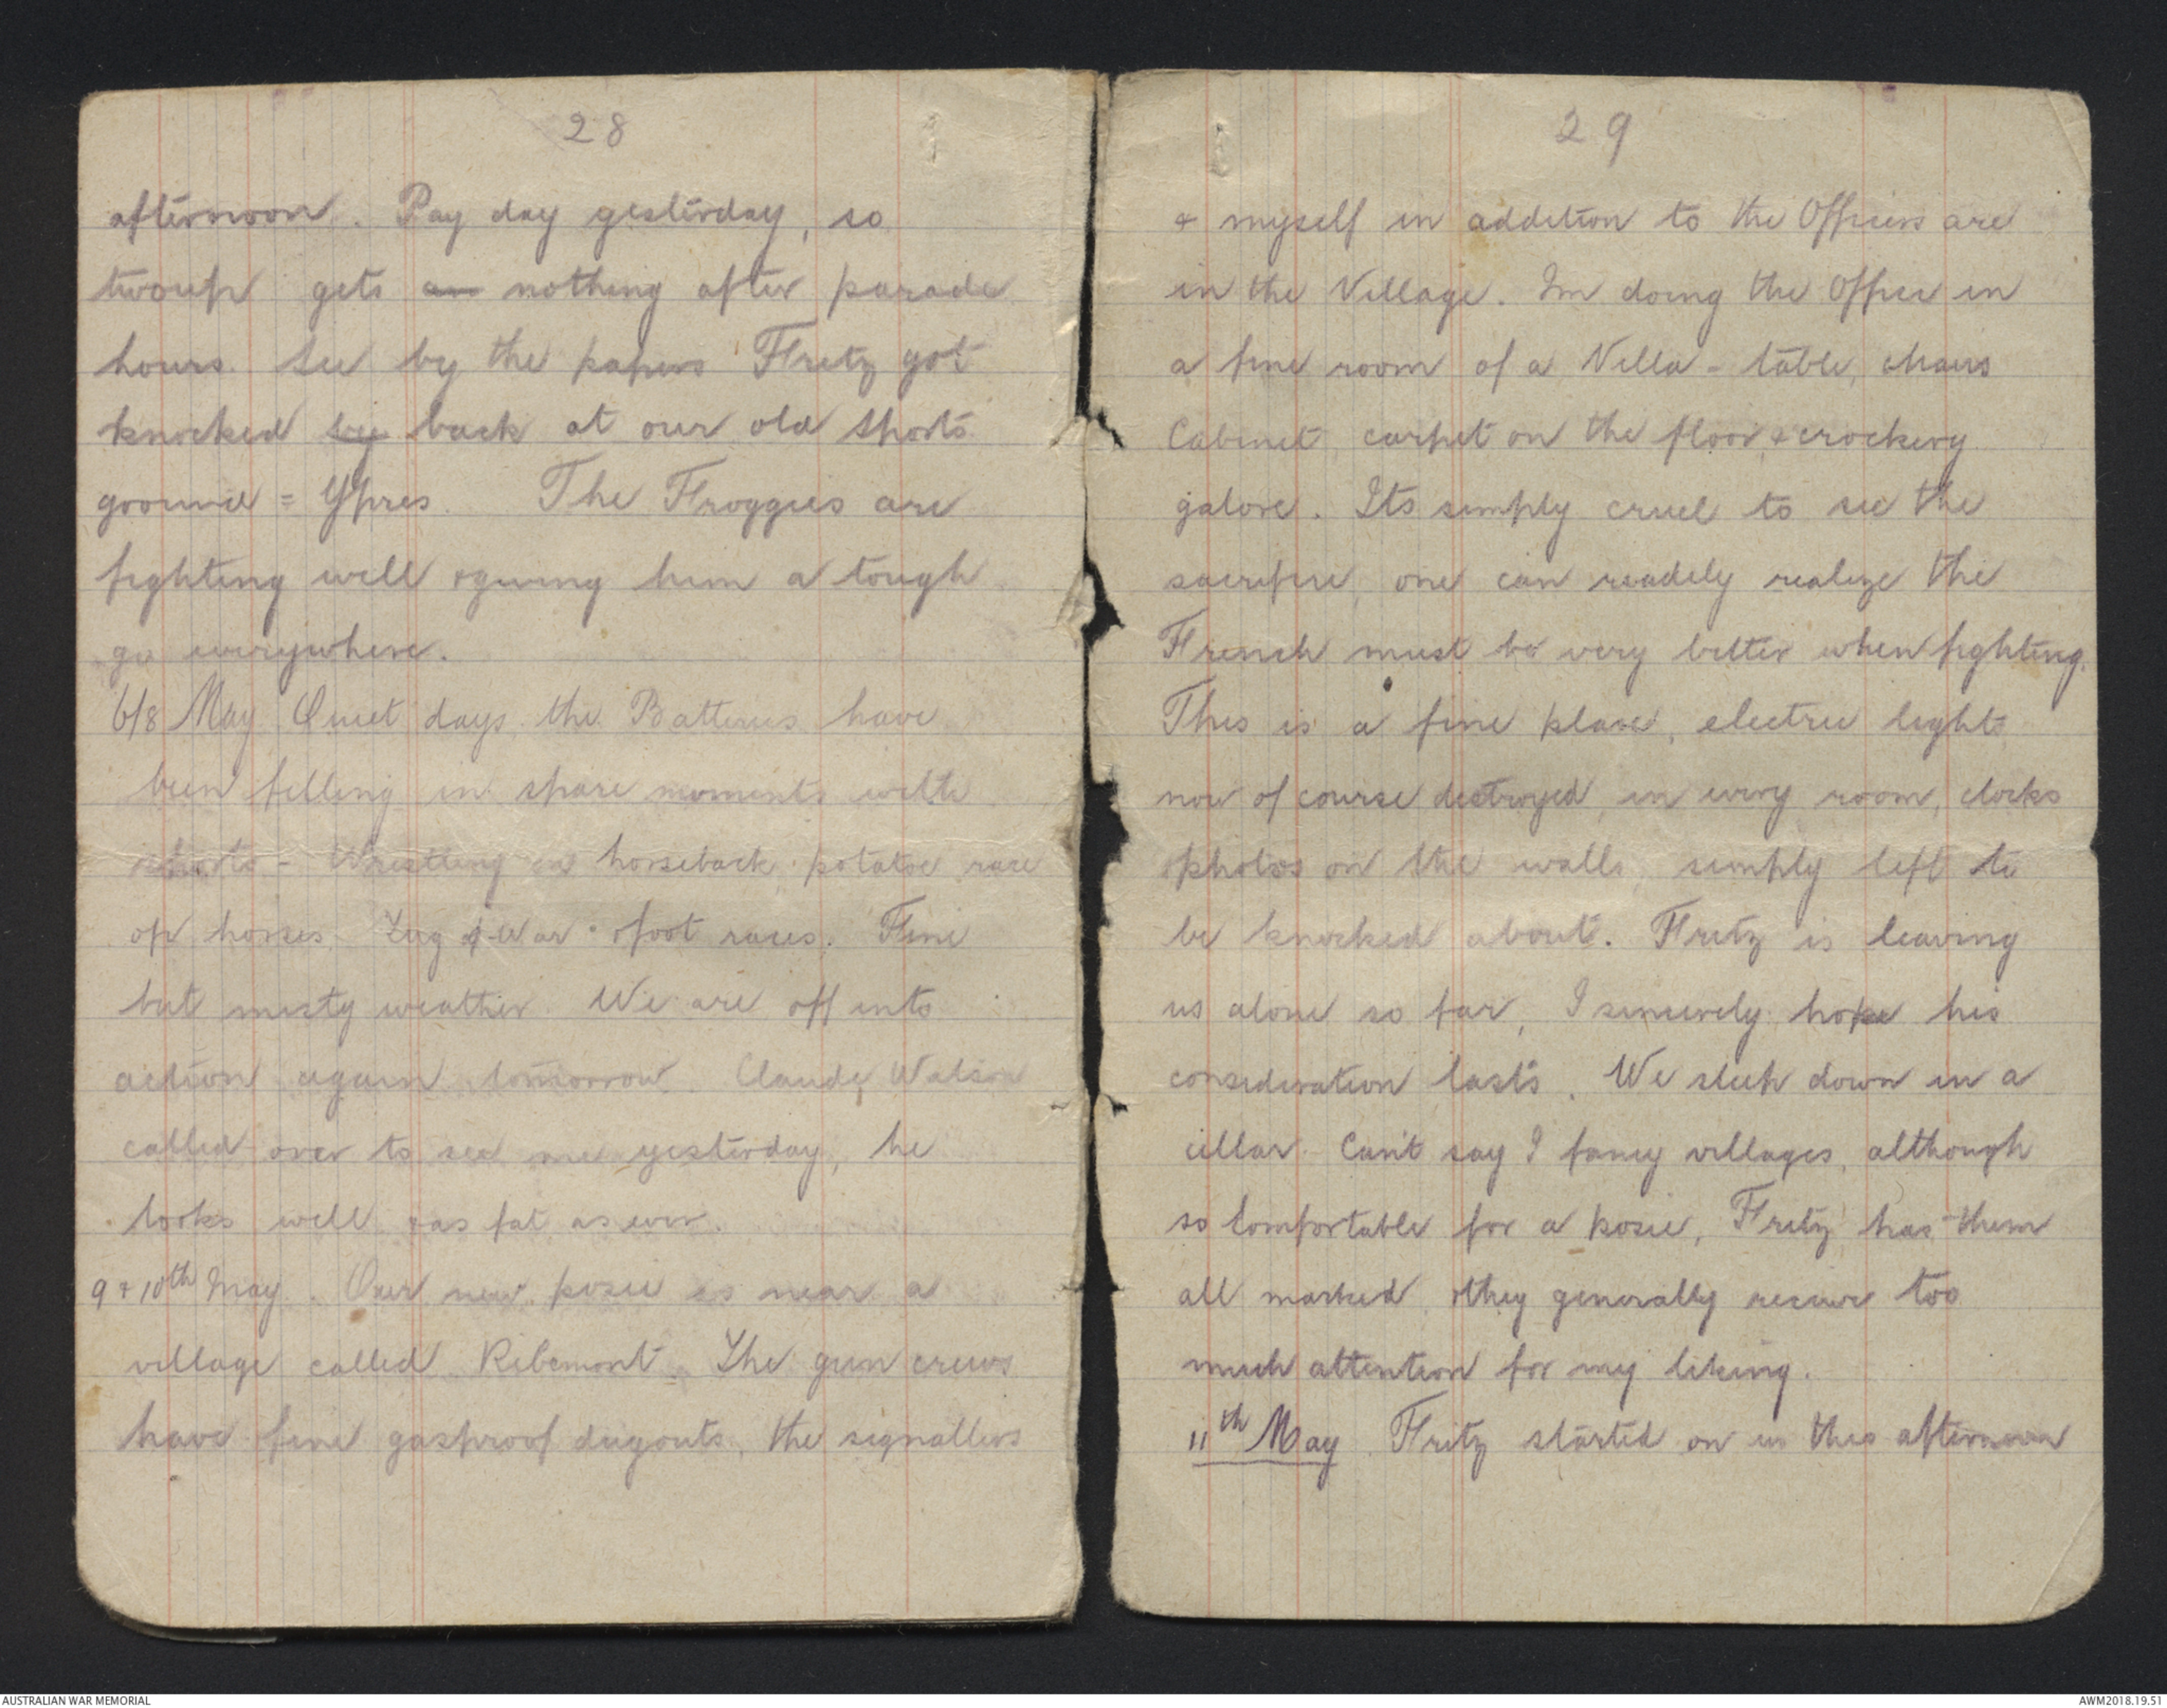 28
afternoon. Pay day yesterday, so
twoup gets an nothing after parade
hours. See by the papers Fritz got
knocked by back at our old sports
ground = Ypres. The Froggies are
fighting well & giving him a tough
go everywhere.
6/8 May Quiet days. the Batteries have
been filling in spare moments with
sports - Wrestling on horseback, potatoe race
on horses, Tug of War & foot races. Fine
but misty weather. We are off into
action again tomorrow. Claude Watson
called over to see me yesterday, he
looks well & as fat as ever.
9 & 10th May. Our new posie is near a
village called Ribemont. The gun crews
have fine gasproof dugouts, the signallers
29
& myself in addition to the Officers are
in the Village. Im doing the Office in
a fine room of a Villa - table, chairs
Cabinet, carpet on the floor, & crockery
galore. Its simply cruel to see the
sacrifice, one can readily realize the
French must be very bitter when fighting.
This is a fine place, electric light
now of course destroyed, in every room, clocks
photos on the walls, simply left to
be knocked about. Fritz is leaving
us alone so far, I sincerely hope his
consideration lasts. We sleep down in a
cellar. Can't say I fancy villages, although
so comfortable for a posie, Fritz has them
all marked & they generally receive too
much attention for my liking.
11th May. Fritz started on us this afternoon
AUSTRALIAN WAR MEMORIAL
AWM2018.19.51